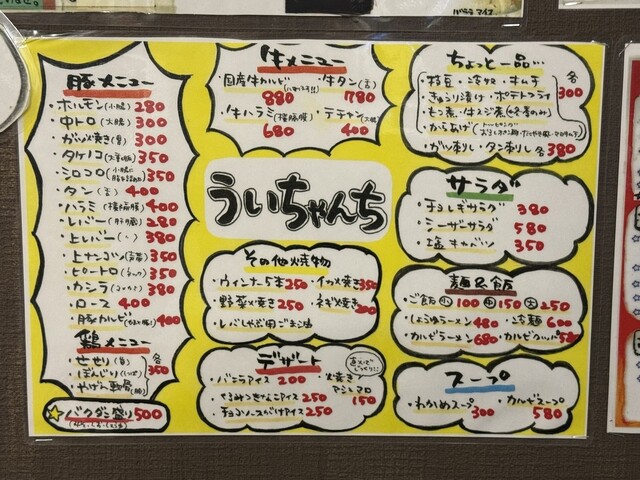 豚メニュー
・ホルモン(小腸) 280
・中トロ(大腸) 300
・ガツ焼き(胃) 300
・タケノコ 350
・シロコロ 350
・タン(舌) 400
・ハラミ(横隔膜) 400
・レバー(肝臓) 280
・上レバー 380
・上ナンコツ 350
・ヒートロ 350
・カシラ 380
・ロース 400
・豚カルビ 400
鶏メニュー
・せせり(首)
・ぼんじり
・やげん軟骨
各350
バクダン盛り 500
牛メニュー
・国産牛カルビ 880
・牛タン(舌) 780
・牛ハラミ(横隔膜) 680
・テッチャン 400
ういちゃんち
その他焼物
・ウィンナー5本 250
・イカ焼き 350
・野菜焼き 250
・ネギ焼き
・レバしゃぶ用ごま油
デザート
・バニラアイス 200
・くるみつきなこアイス 250
・チョコソースがけアイス 250
・焼きマシュマロ 150
ちょっと一品…
・枝豆・冷奴・キムチ
・きゅうり漬け・ポテトフライ
・もつ煮・牛スジ煮(冬季のみ)
・からあげ
各300
・ガツ刺し・タン刺し 各380
サラダ
・チョレギサラダ 380
・シーザーサラダ 580
・塩キャベツ 350
麺&飯
・ご飯 小100 中150 大250
・しょうゆラーメン 480
・冷麺 600
・カルビラーメン 680
・カルビクッパ
スープ
・わかめスープ 300
・カルビスープ 580
バニラアイス